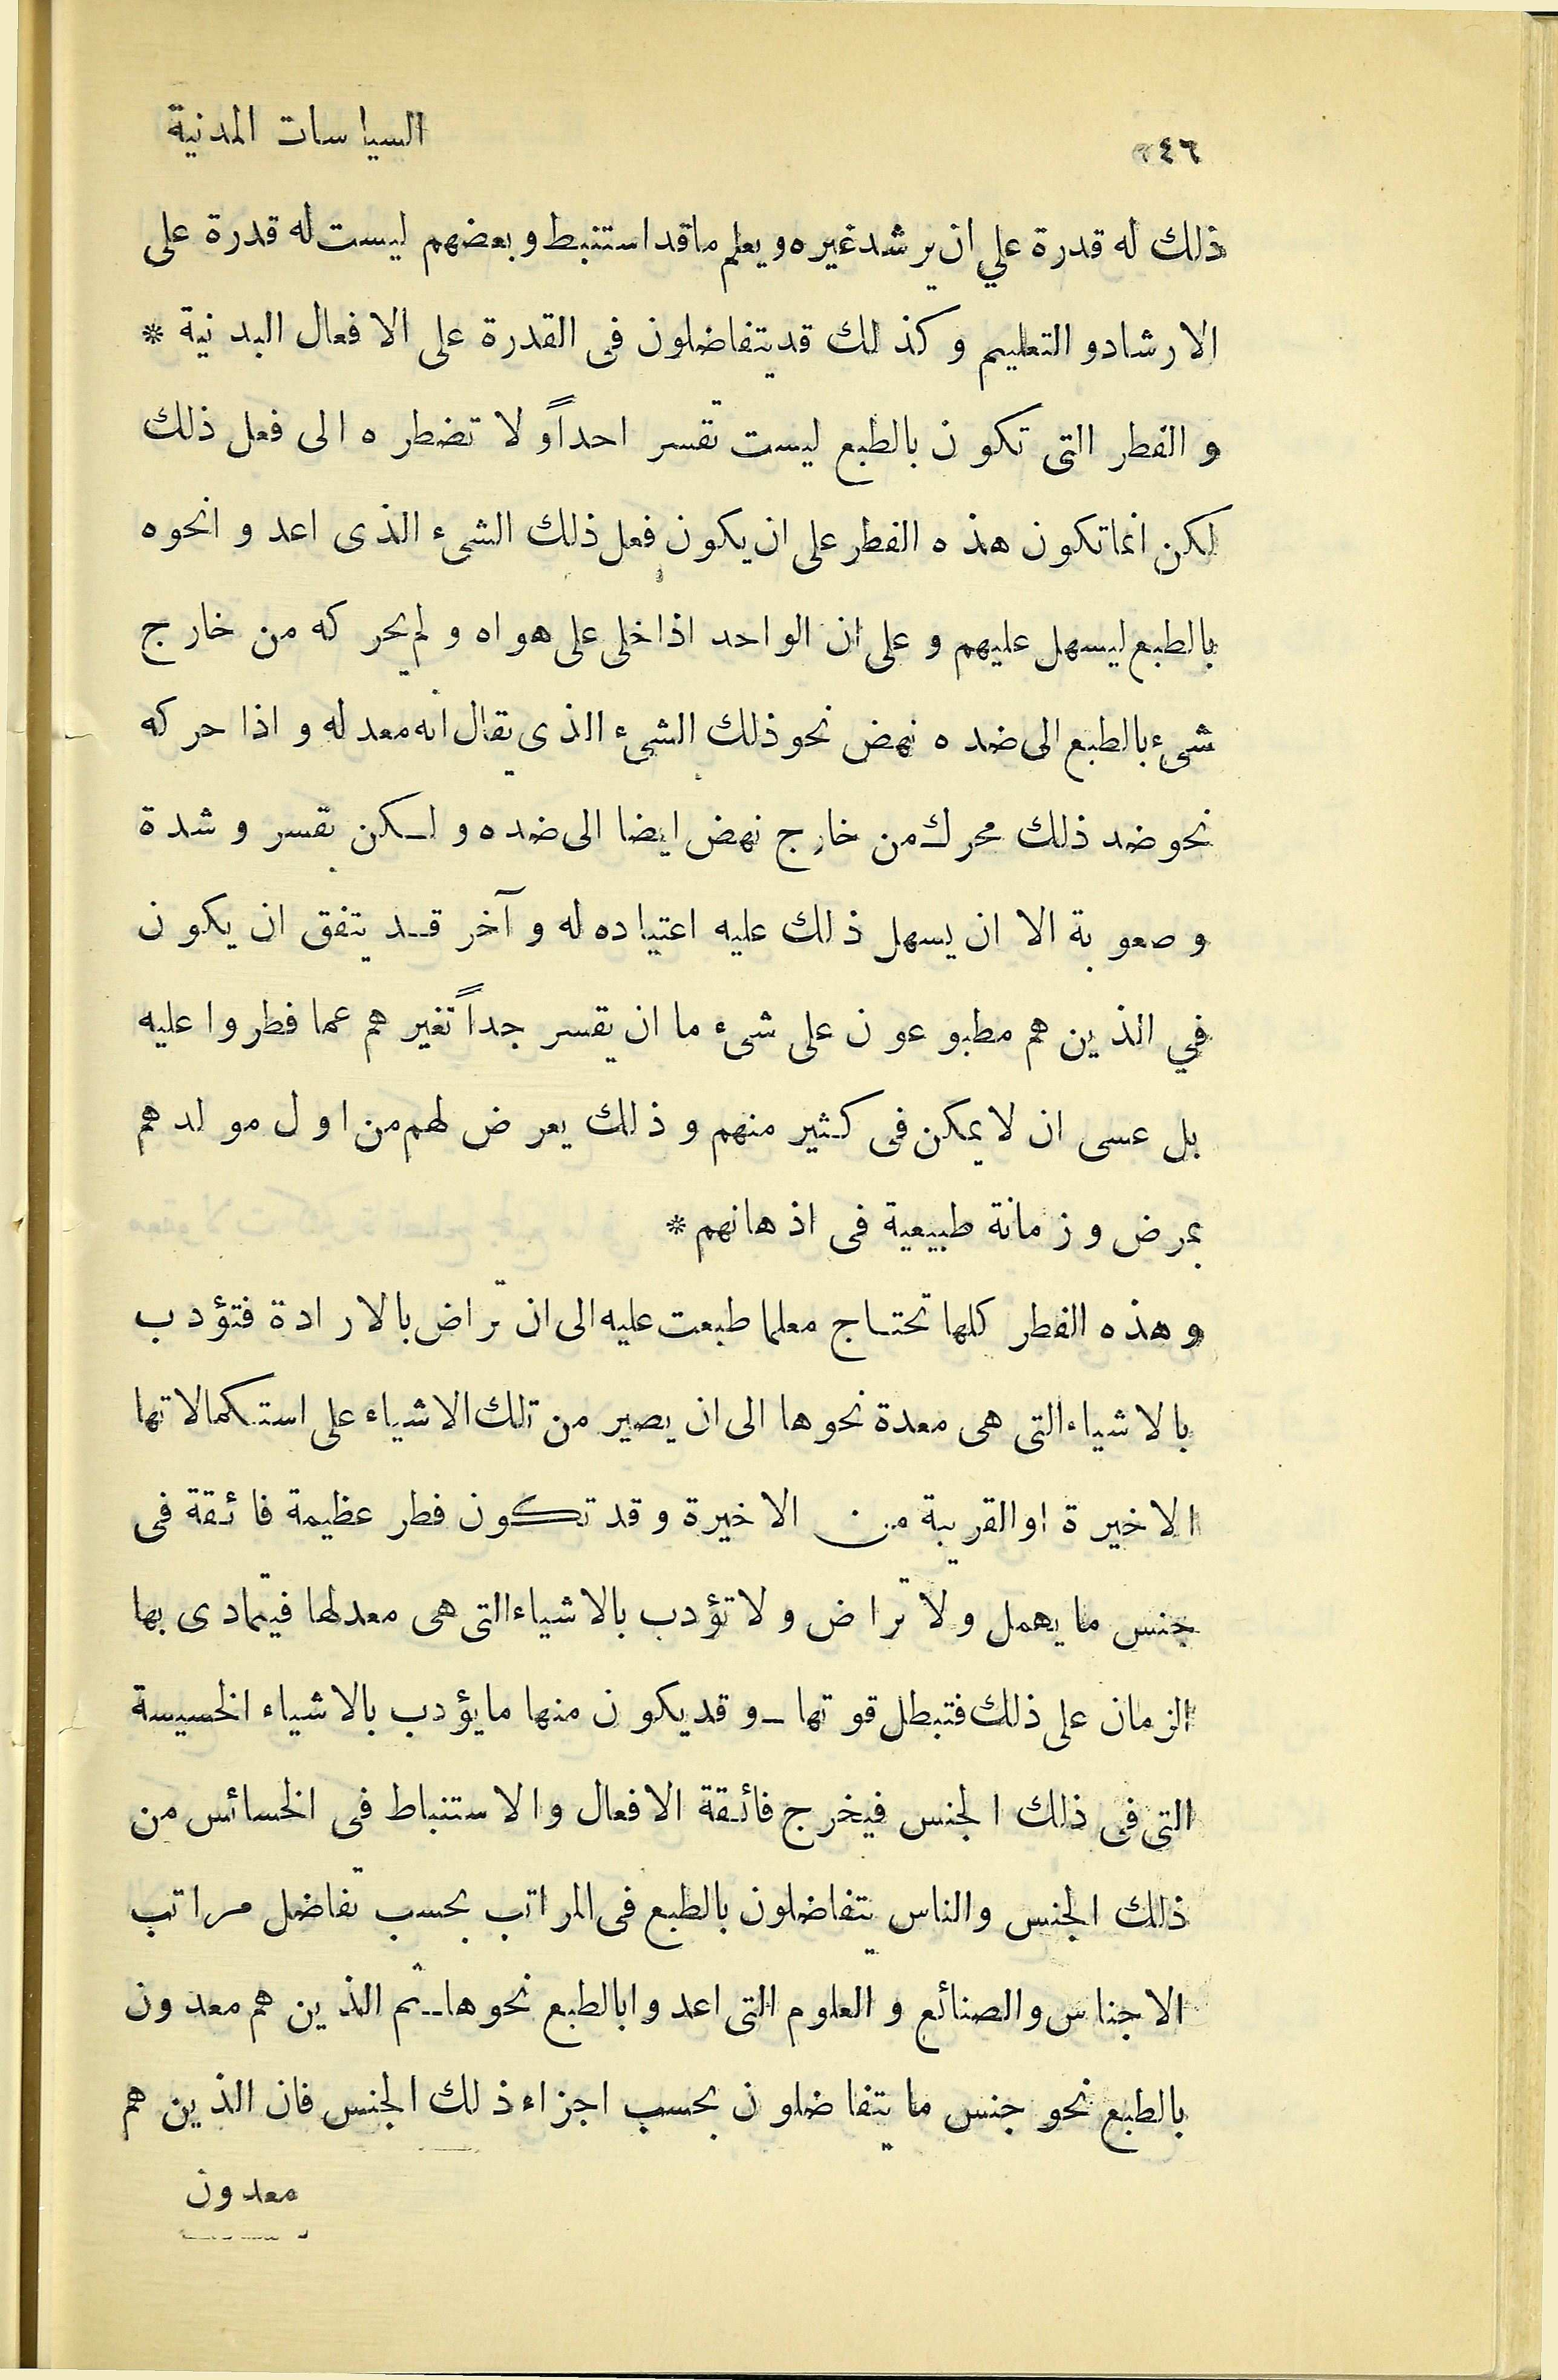 ٤٦
السياسات المدنية
ذلك له قدرة علي ان يرشد غيره و يعلم ما قد استنبط و بعضهم ليست له قدرة على
الارشاد و التعليم و كذلك قد يتفاضلون فى القدرة على الافعال البدنية *
و الفطر التى تكون بالطبع ليست تقسر احداً و لا تضطره الى فعل ذلك
لكن انما تكون هذه الفطر على ان يكون فعل ذلك الشىء الذى اعدوا نحوه
بالطبع ليسهل عليهم و على ان الواحد اذا خلى على هواه و لم يحركه من خارج
شىء بالطبع الى ضده نهض نحو ذلك الشىء الذى يقال انه معد له و اذا حركه
نحو ضد ذلك محرك من خارج نهض ايضا الى ضده و لكن بقسر و شدة
و صعوبة الا ان يسهل ذلك عليه اعتياده له و آخر قد يتفق ان يكون
في الذين هم مطبوعون على شىء ما ان يقسر جداً تغيرهم عما فطروا عليه
بل عسى ان لا يمكن فى كثير منهم و ذلك يعرض لهم من اول مولدهم
بمرض و زمانة طبيعية فى اذهانهم *
و هذه الفطر كلها تحتاج معلما طبعت عليه الى ان تراض بالارادة فتؤدب
بالاشياء التى هى معدة نحوها الى ان يصير من تلك الاشياء على استكمالاتها
الاخيرة او القريبة من الاخيرة و قد تكون فطر عظيمة فائقة فى
جنس ما يهمل و لا تراض و لا تؤدب بالاشياء التى هى معد لها فيتمادى بها
الزمان على ذلك فتبطل قوتها ـ و قد يكون منها ما يؤدب بالاشياء الخسيسة
التى فى ذلك الجنس فيخرج فائقة الافعال و الاستنباط فى الخسائس من
ذلك الجنس و الناس يتفاضلون بالطبع فى المراتب بحسب تفاضل مراتب
الاجناس و الصنائع و العلوم التى اعدوا بالطبع نحوها ـ ثم الذين هم معدون
بالطبع نحو جنس ما يتفاضلون بحسب اجزاء ذلك الجنس فان الذين هم
معدون